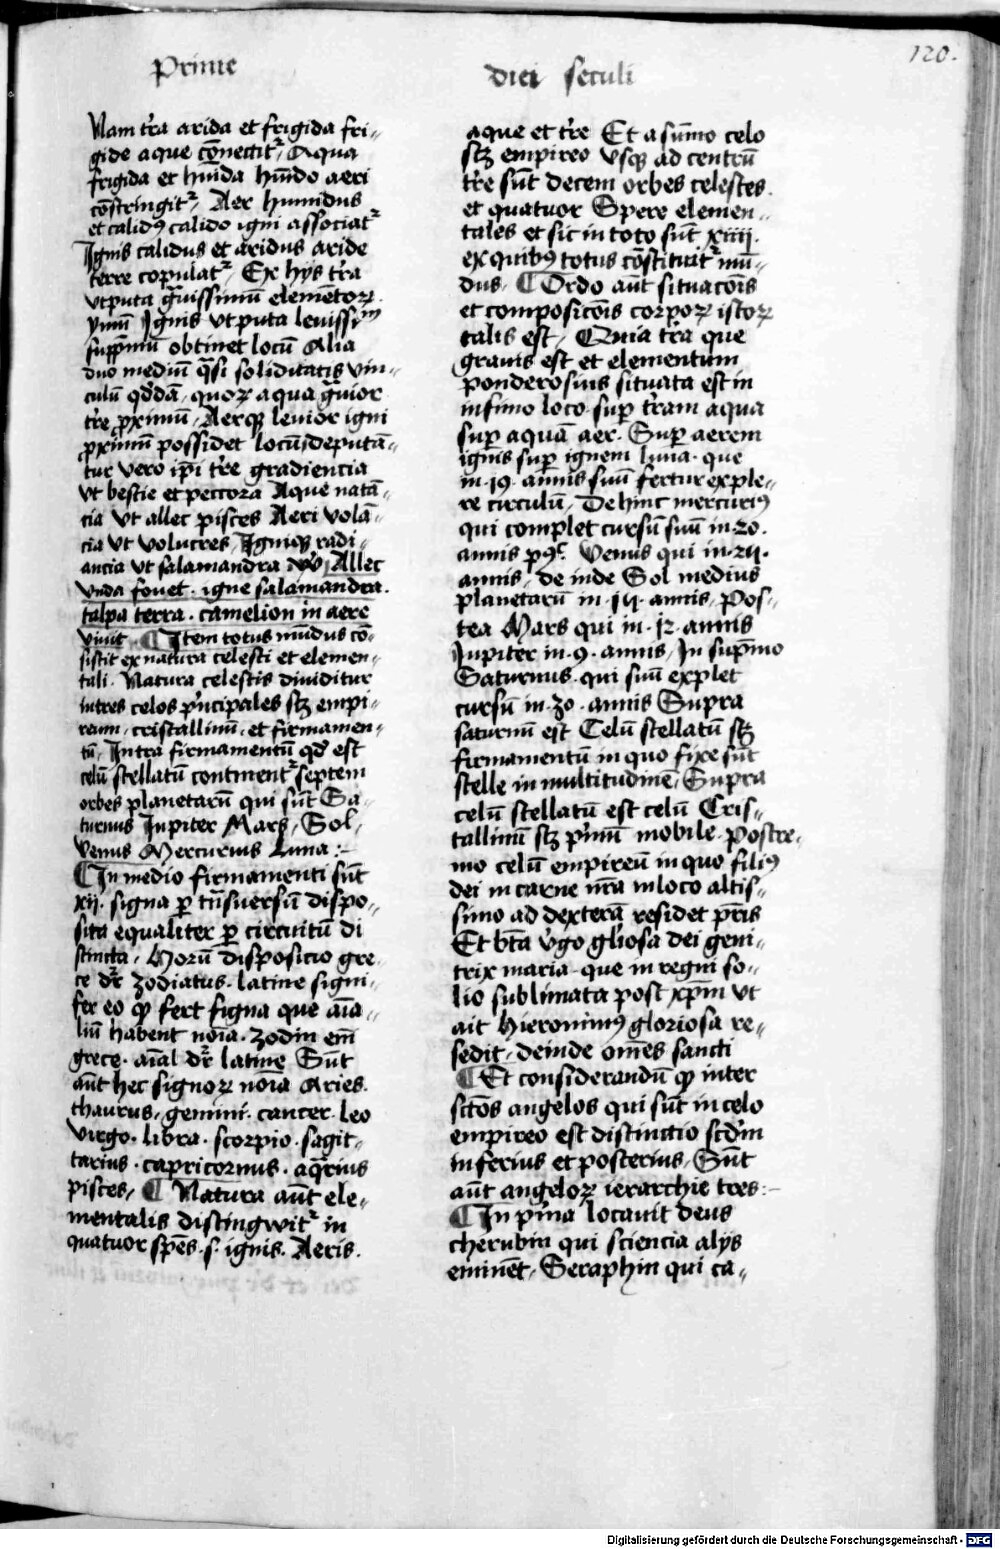 Prime diei seculi
120.
Nam tr̄a arida et frigida fri-
gide aque cōnectit᷑, Aqua
frigida et hūida hūido aeri
cōstringit᷑, Aer humidus
et calidꝰ calido igni associat᷑
Ignis calidus et aridus aride
terre copulat᷑, Ex hys tr̄a
utputa gͣuissimū elemētoꝝ
ymū Ignis utputa levissiᵐ
supp̄mū obtinet locū Alia
duo mediū q̄si soliditatis vin-
culū qd̄dā, quoꝝ aqua gͣuior
tr̄e ꝓximū, Aerqꝫ levior igni
ꝓximū possidet locū, deputā-
tur vero ip̄i tr̄e gradiencia
ut bestie et peccora Aque natā-
cia ut allec pisces Aeri volā-
cia ut volucres, Igniqꝫ radi-
ancia ut salamandra v̄ꝰ Allec
unda fovet · igne salamandra ·
talpa terra · camelion in aere
vivit · ¶ Item totus mūdus cō-
sistit ex natura celesti et elemen-
tali · Natura celestis dividitur
in tres celos p̄ncipales scꝫ empi-
reum, cristallinū, et firmamen-
tū, Intra firmamentū qd̄ est
celū stellatū continent᷑ septem
orbes planetarū qui sūt Sa-
turnus Jupiter Mars, Sol,
Venus Mercurius Luna :-
¶ In medio firmamenti sūt
xij · signa ꝑ trͣsuersū dispo-
sita equaliter ꝑ circuitū di
stincta, Horū disposicio gre
ce dr̄ zodiatus · latine signi-
fer eo ꝙ fert signa que aīa-
liū habent noīa · zodin em̄
grece · aīal dr̄ latine Sūt
aūt hec signoꝝ noīa Aries ·
thaurus, gemini · cancer · leo
virgo · libra · scorpio · sagit-
tarius · capricornus · aqͣrius
pisces, ¶ Natura aūt ele-
mentalis distingwit᷑ in
quatuor sp̄es · s · ignis · Aeris ·
aque et tr̄e Et a sūmo celo
scꝫ empireo usqꝫ ad centrū
tr̄e sūt decem orbes celestes ·
et quatuor Spere elemen-
tales et sic in toto sūt xiiij ·
ex quibꝰ totus cōstituit᷑ mū-
dus · ¶ Ordo aūt situacōis
et composicōis corpoꝝ istoꝝ
talis est, Quia tr̄a que
gravis est et elementum
ponderosius situata est in
infimo loco · suꝑ tr̄am aqua
suꝑ aquā aer · Suꝑ aerem
ignis suꝑ ignem luna · que
in · 19 · annis suū fertur exple-
re circulū, Dehinc mercuriꝰ
qui complet cursū suū in · 20 ·
annis
Venus qui in · 22 ·
annis, deinde Sol medius
planetarū in
annis, Pos-
tea Mars qui in · 12 · annis
Jupiter in · 9 · annis, In sup̄mo
Saturnus · qui suū explet
cursū in · 30 · annis Supra
saturnū est Celū stellatū scꝫ
firmamentū in quo fixe sūt
stelle in multitudine, Supra
celū stellatū est celū Cris-
tallinū scꝫ p̄mū mobile · Postre-
mo celū empireū in quo filiꝰ
dei in carne nr̄a in loco altis-
simo ad dexterā residet pr̄is
Et bt̄a v̄go gl̄iosa dei geni-
trix maria · que in regni so-
lio sublimata post xp̄m ut
ait Hieronimꝰ gloriosa re-
sedit, deinde om̄es sancti
¶ Et considerandū ꝙ inter
sct̄os angelos qui sūt in celo
empireo est distinctio scd̄m
inferius et posterius, Sūt
aūt angeloꝝ ierarchie tres :-
¶ In p̄ma locavit deus
cherubin qui sciencia alijs
eminēt, Seraphin qui ca-
Digitalisierung gefördert durch die Deutsche Forschungsgemeinschaft - DFG